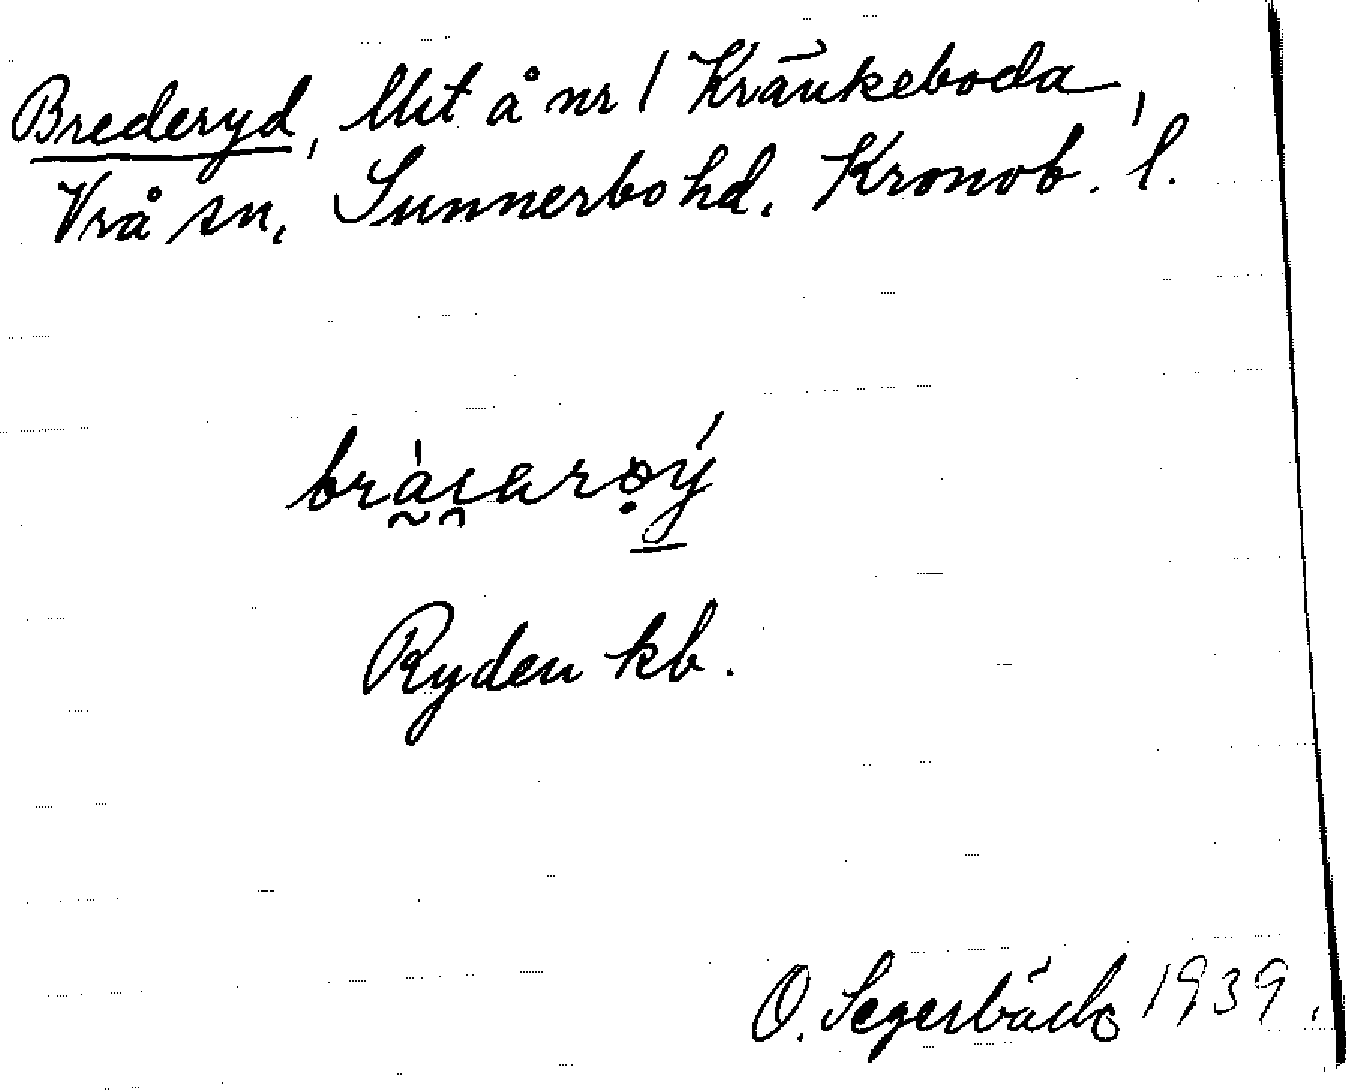 Brederyd, Utst å nr 1 Kränkeboda,
Vrå sn, Sunnerbo hd. Kronob. l.
Ryden kb.
O. Segerbäck 1939.